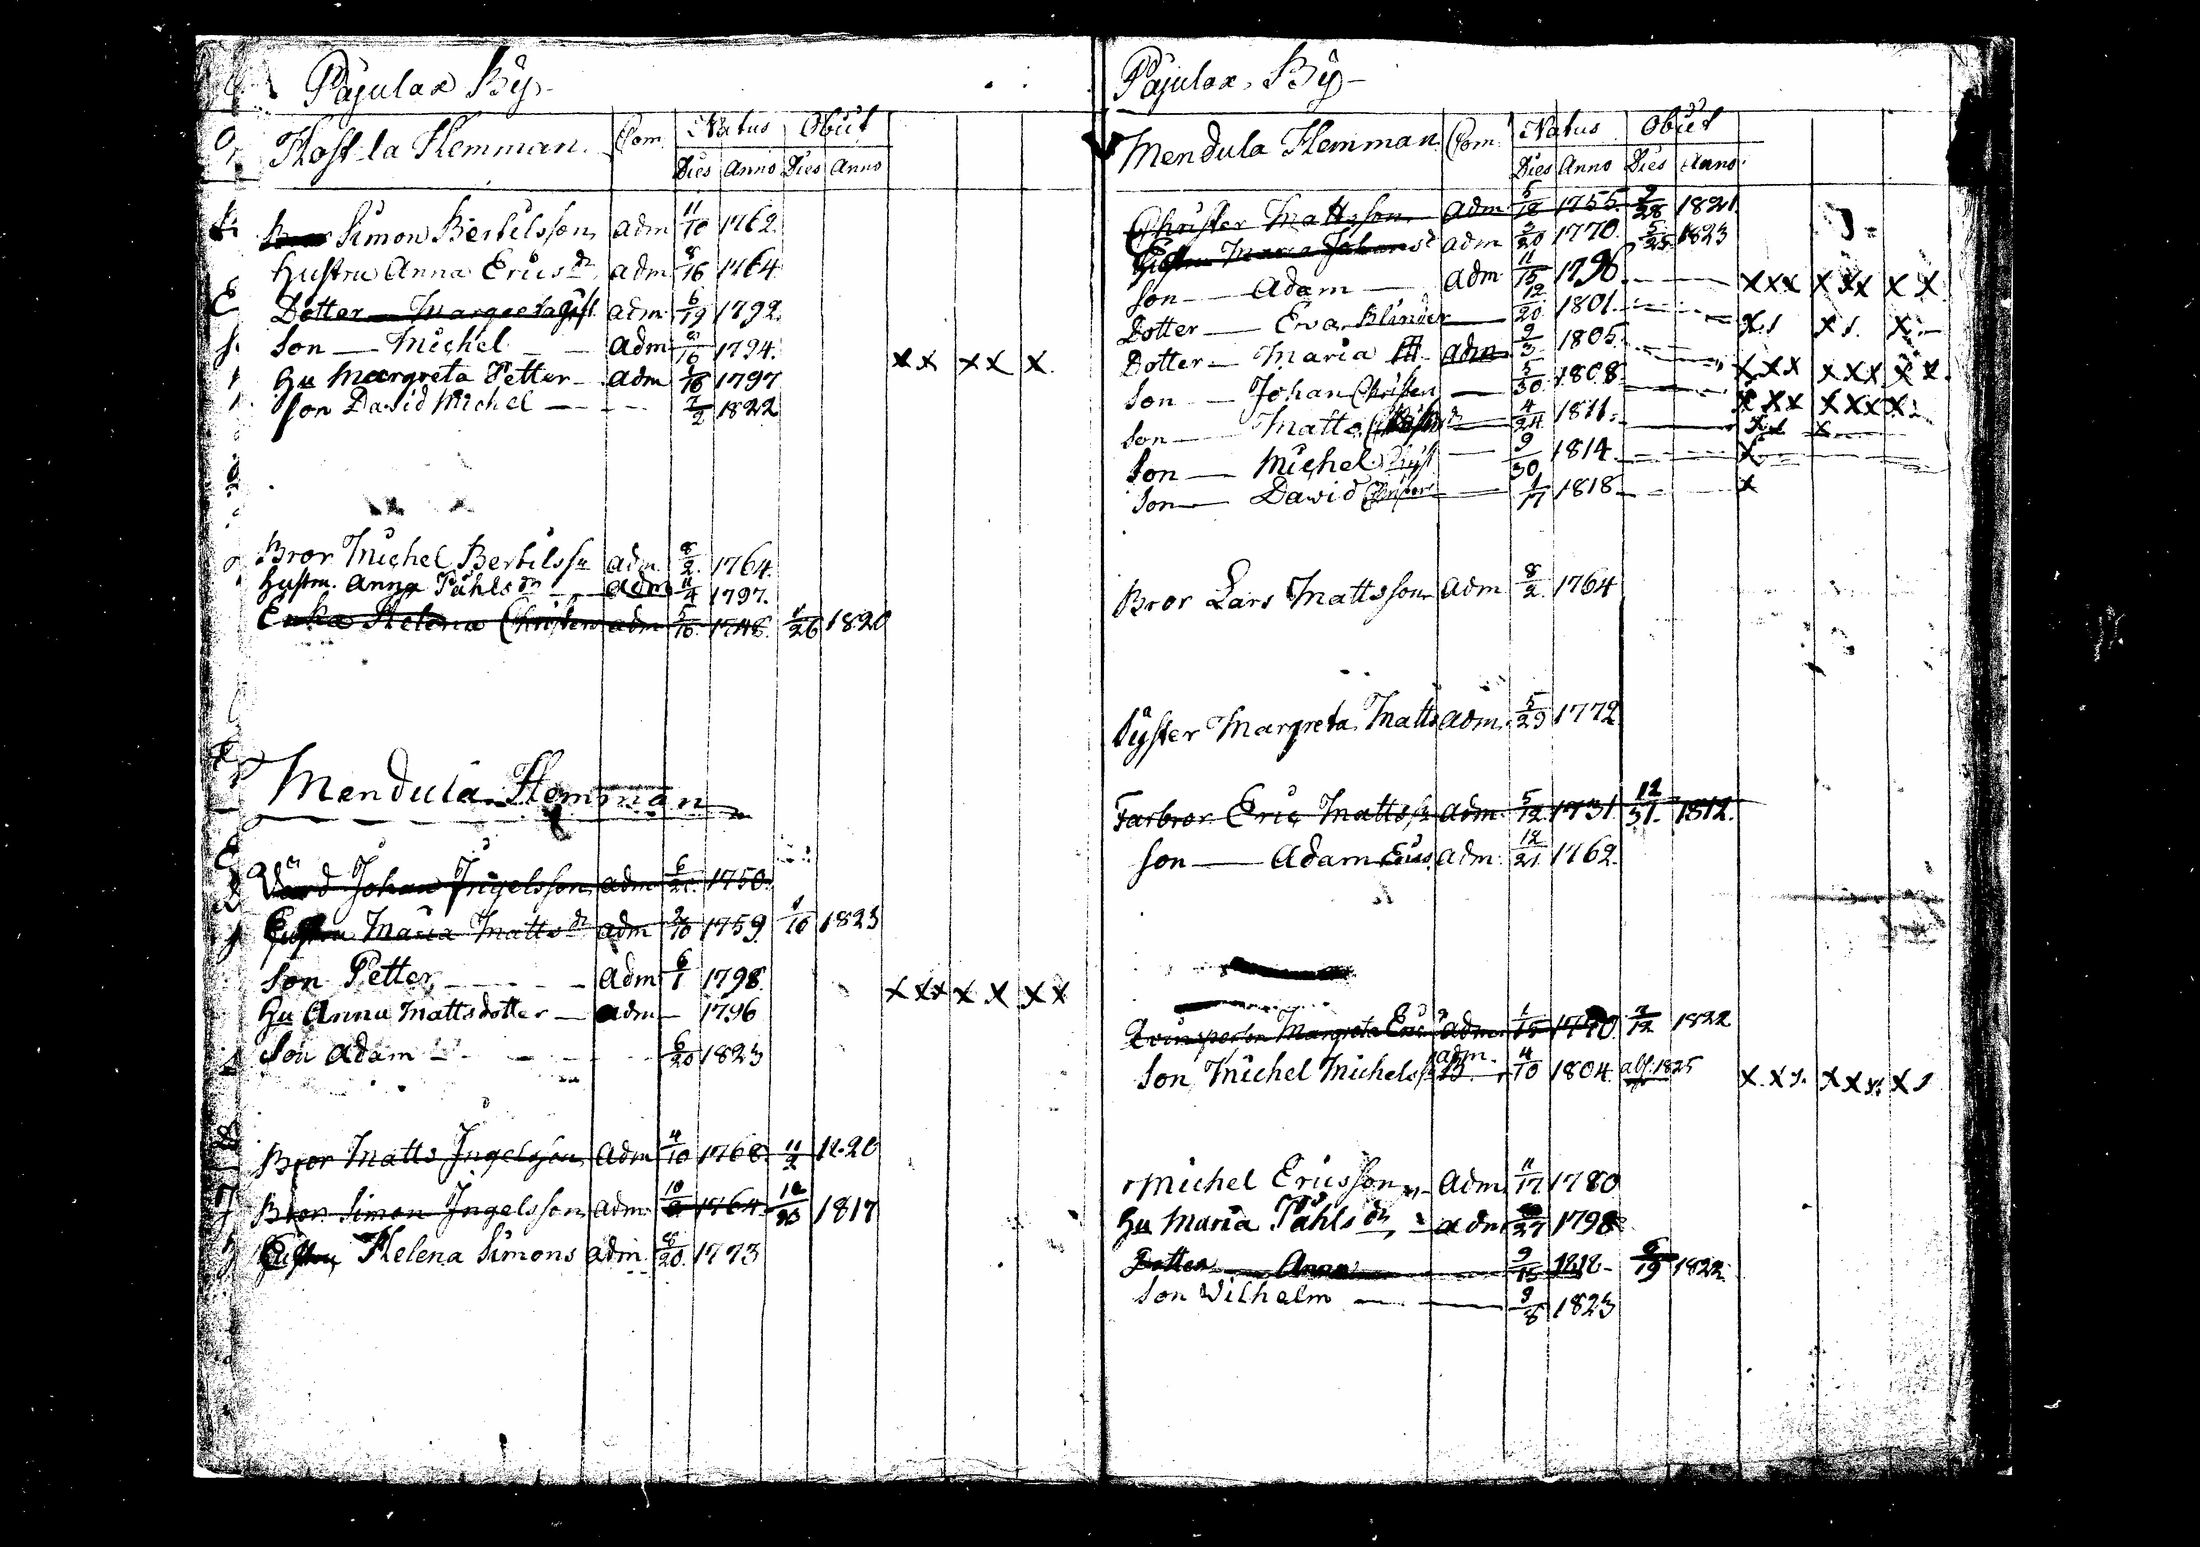 Pajulax By
Host-la Hemman. Com. Natus Obiit
Dies Anno Dies Anno
Bror Simon Bertilsson adm 11/10 1762.
Hustru Anna Ericsdr adm 8/16 1764
Dotter — Margreta gift adm 6/19 1792.
Son — Michel — adm 1794.
Hu Margreta Petter adm 1797
Son David Michel — 7/2 1822
xx xx x
Bror Michel Bertilss adm 8/2 1764.
Hustru Anna Påhlsdr adm 11/4 1797.
Enka Helena Christers adm 5/16 1748. 1/26 1820
Mendula Hemman
Värd Johan Ingelsson adm 6/21 1750.
Hustru Maria Mattsdr adm 2/10 1759. 1/10 1823
Son Petter — adm 6/1 1798.
Hu Anna Mattsdotter — adm — 1796
xxx x x x x
Son Adam — 6/20 1823
Bror Matts Ingelsson adm 4/10 1768. 11/2 1820
Bror Simon Ingelsson adm 1764. 1817
Hustru Helena Simons adm 8/20 1773
Pajulax By
Mendula Hemman Com. Natus Obiit
Dies Anno Dies Anno
Christer Mattsson adm 5/18 1755. 2/28 1821.
Hustru Maria Johansd adm 3/20 1770. 5/25 1823
Son — Adam — adm 11/15 1796 xxx xxx xx
Dotter — Eva Blinder — 12/20 1801.
Dotter — Maria adm 9/3 1805.
Son — Johan Christer — 5/30 1808.
Son — Matts — 4/24 1811.
Son — Michel — 9/30 1814
Son — David — 1/17 1818 x
Bror Lars Mattsson adm 8/2 1764
Syster Margreta Matts adm 5/23 1772
Farbror Eric Mattss adm 5/12 1731. 12/31. 1812.
Son — Adam Erics adm. 12/21 1762.
Qvinsperson Margreta Eric adm 1/15 1770. 2/12 1822
Son Michel Michelss adm. 4/10 1804. abs. 1825
Michel Ericsson adm 11/17 1780
Hu Maria Påhlsdr adm 1798
Dotter — Anna — 9/15 1818 6/19 1822
Son Wilhelm — 9/8 1823